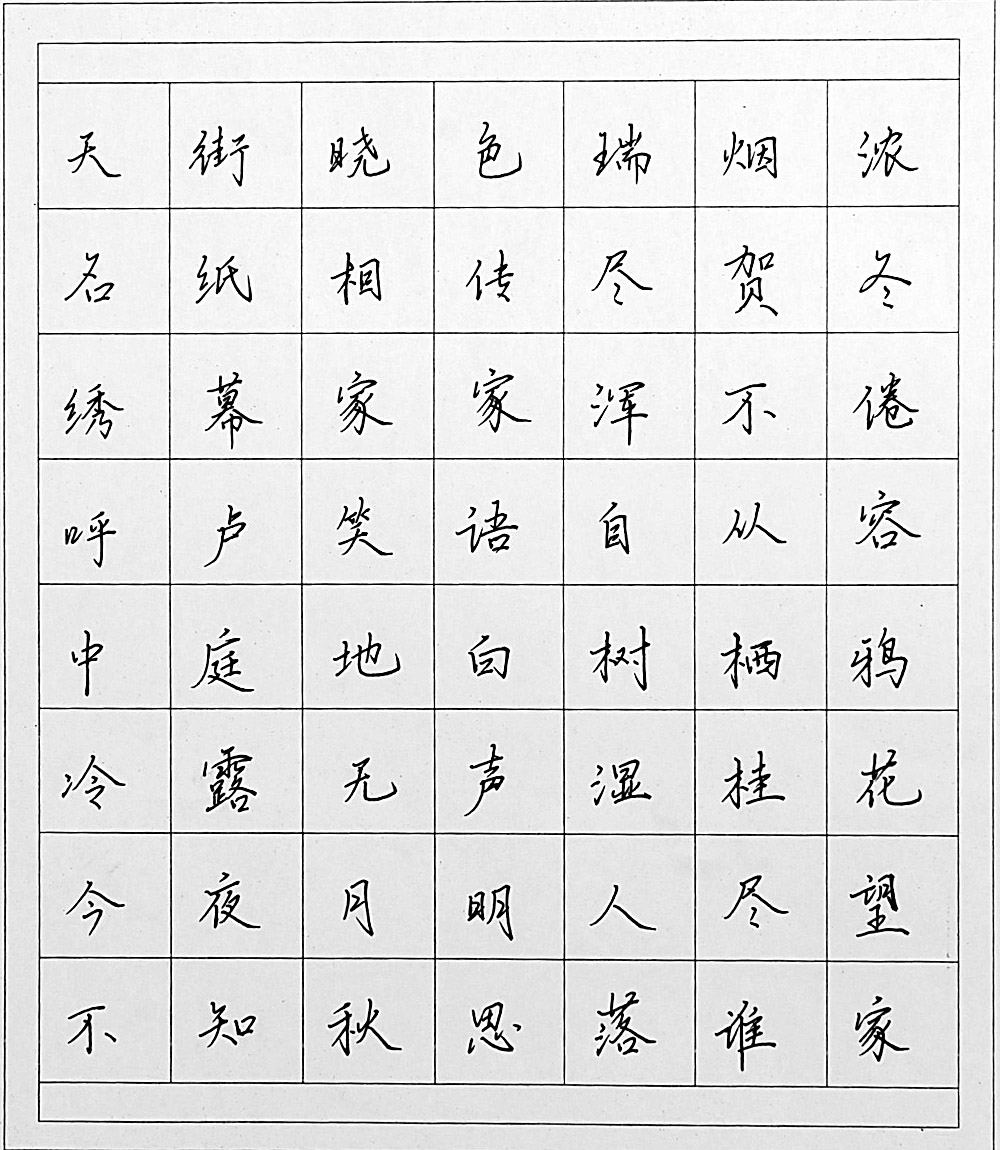 天街晓色瑞烟浓
名纸相传尽贺冬
绣幕家家浑不倦
呼卢笑语自从容
中庭地白树栖鸦
冷露无声湿桂花
今夜月明人尽望
不知秋思落谁家